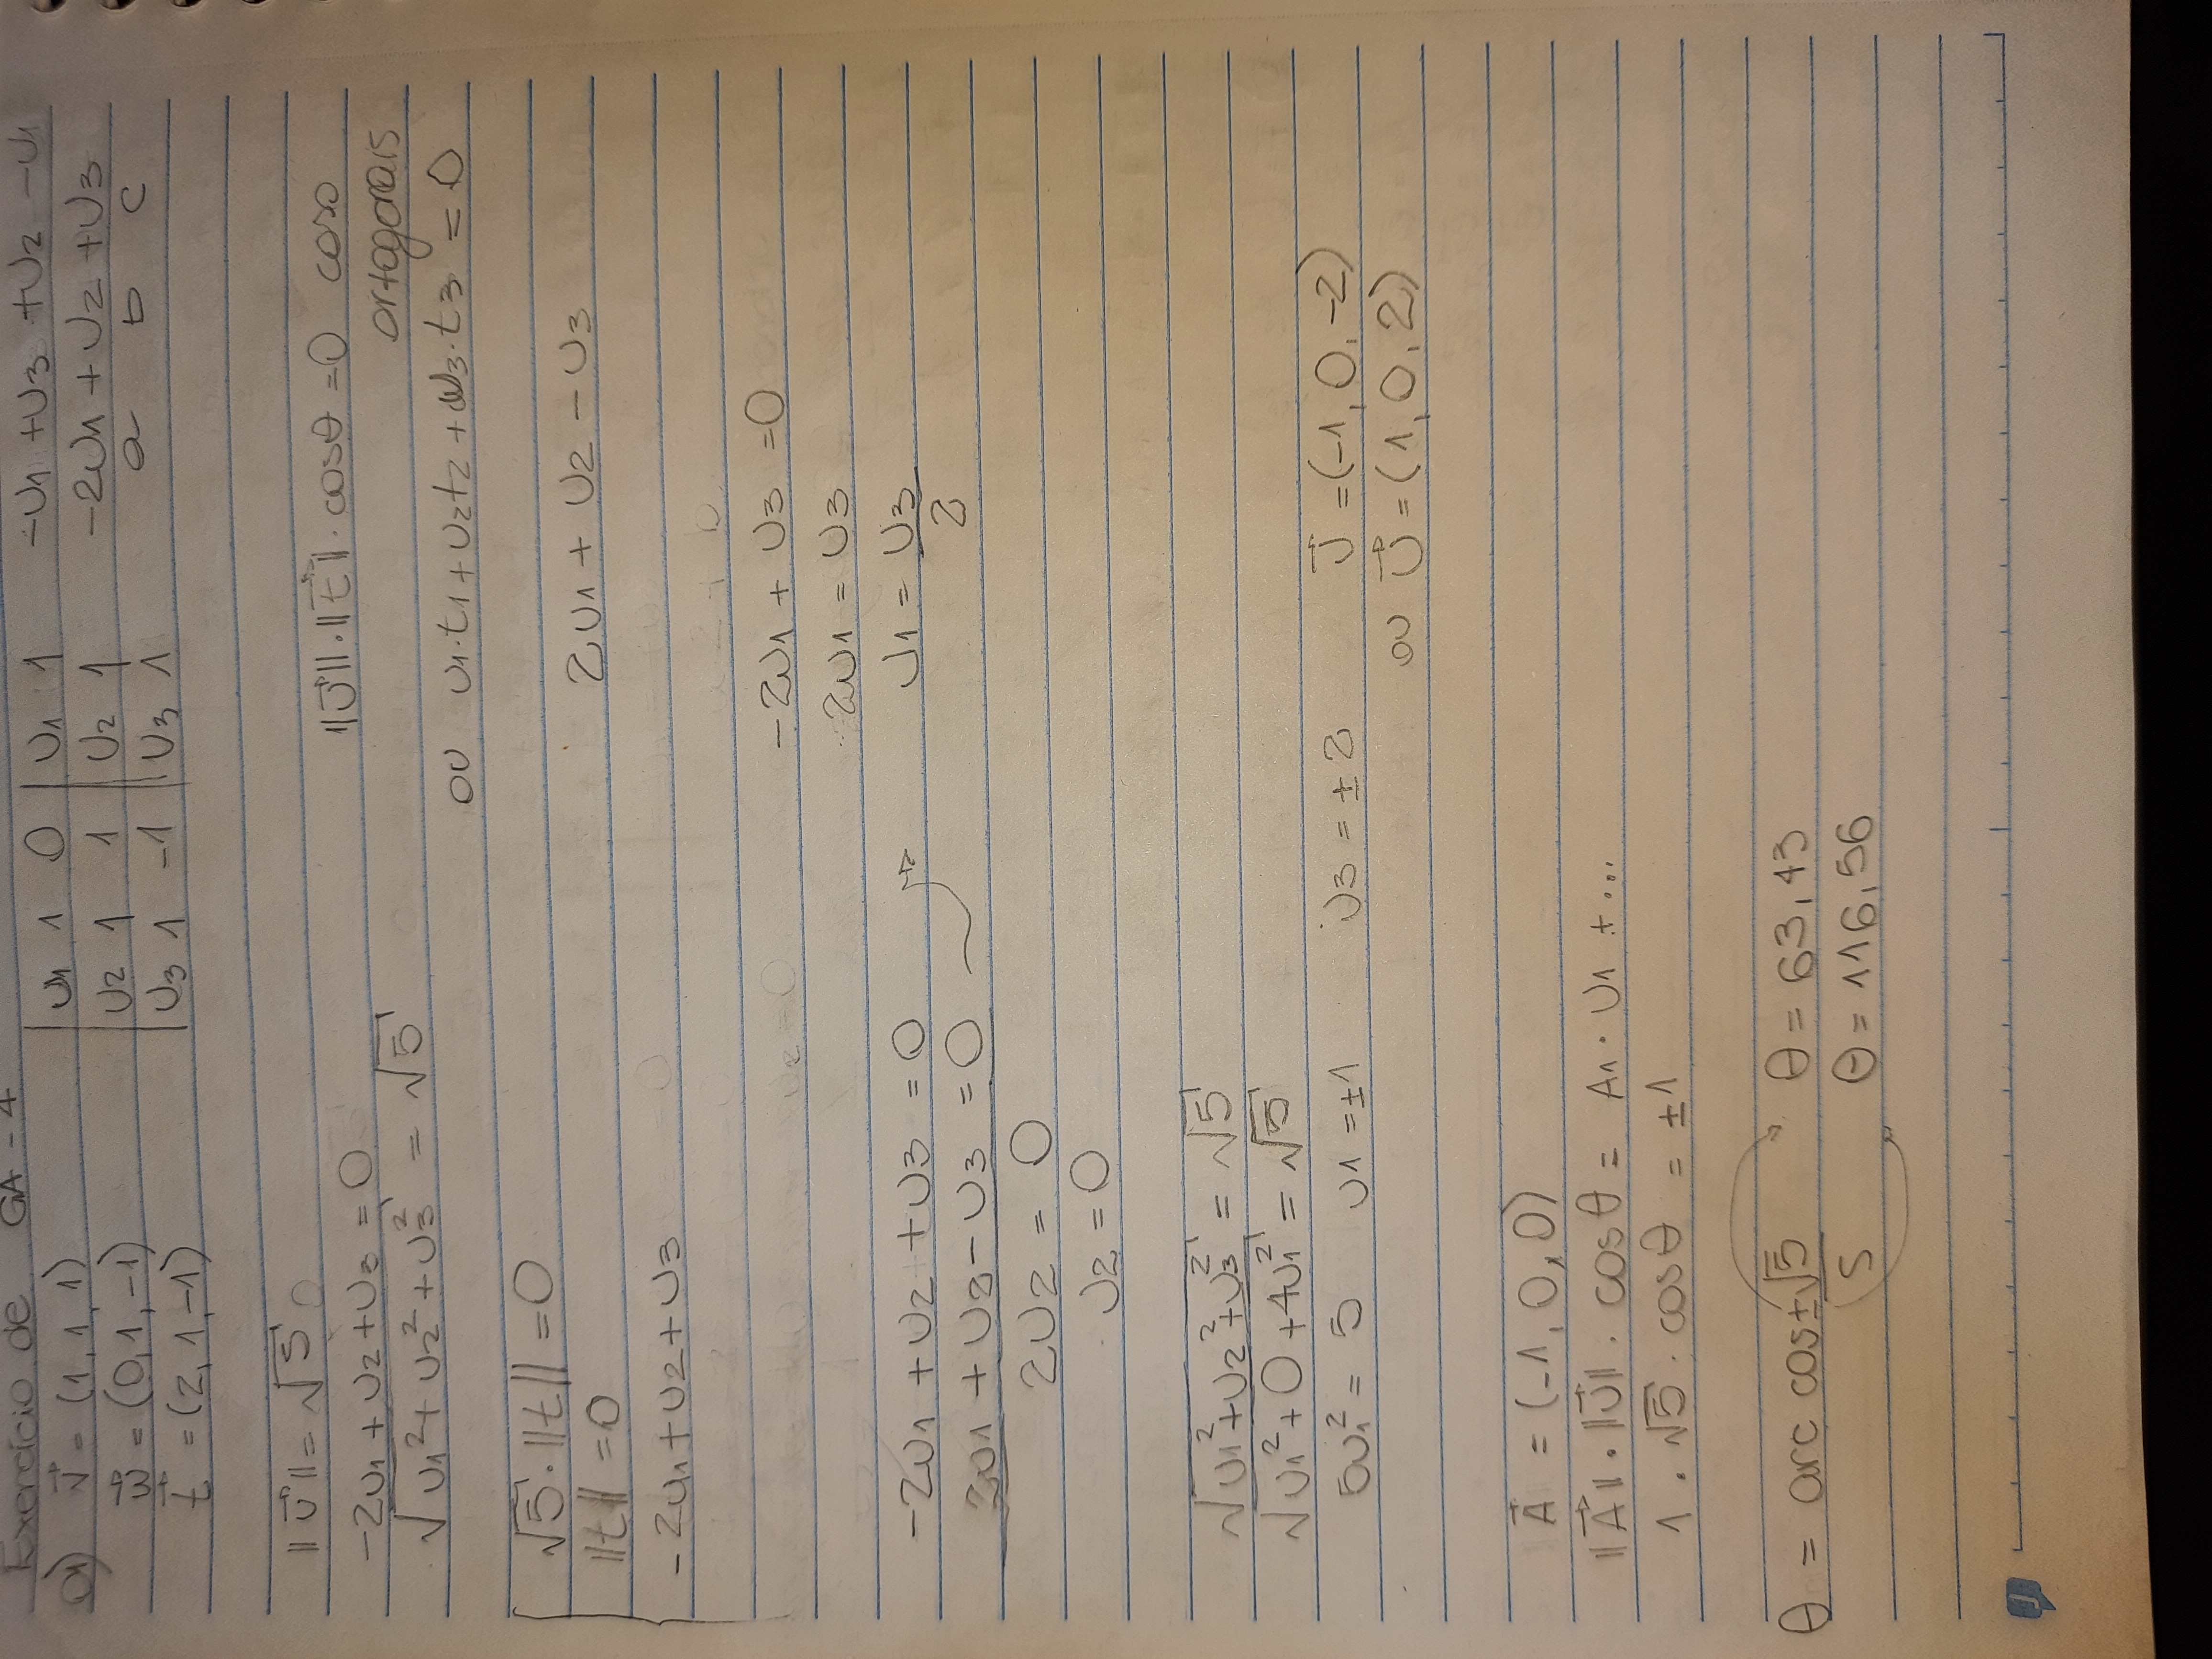 Exercício de GA - 4
01) v⃗ = (1, 1, 1)
w⃗ = (0, 1, -1)
t⃗ = (2, 1, -1)
| u1 1 0 | u1 1
| u2 1 1 | u2 1
| u3 1 -1 | u3 1
-u1 + u3 + u2 - u1
-2u1 + u2 + u3
a b c
||u⃗|| = √5
-2u1 + u2 + u3 = 0
√(u1² + u2² + u3²) = √5
||u⃗|| · ||t⃗|| · cosθ = 0 caso
ortogonais
ou u1·t1 + u2t2 + u3·t3 = 0
√5 · ||t|| = 0
||t|| = 0
-2u1 + u2 + u3
2u1 + u2 - u3
-2u1 + u2 + u3 = 0
2u1 + u2 - u3 = 0
2u2 = 0
u2 = 0
-2u1 + u3 = 0
2u1 = u3
u1 = u3/2
√(u1² + u2² + u3²) = √5
√(u1² + 0 + 4u1²) = √5
5u1² = 5 u1 = ±1 u3 = ±2 u⃗ = (-1, 0, -2)
ou u⃗ = (1, 0, 2)
A⃗ = (-1, 0, 0)
||A⃗|| · ||u⃗|| · cosθ = A1 · u1 + ...
1 · √5 · cosθ = ±1
θ = arc cos ±√5/5
θ = 63,43
θ = 116,56
J